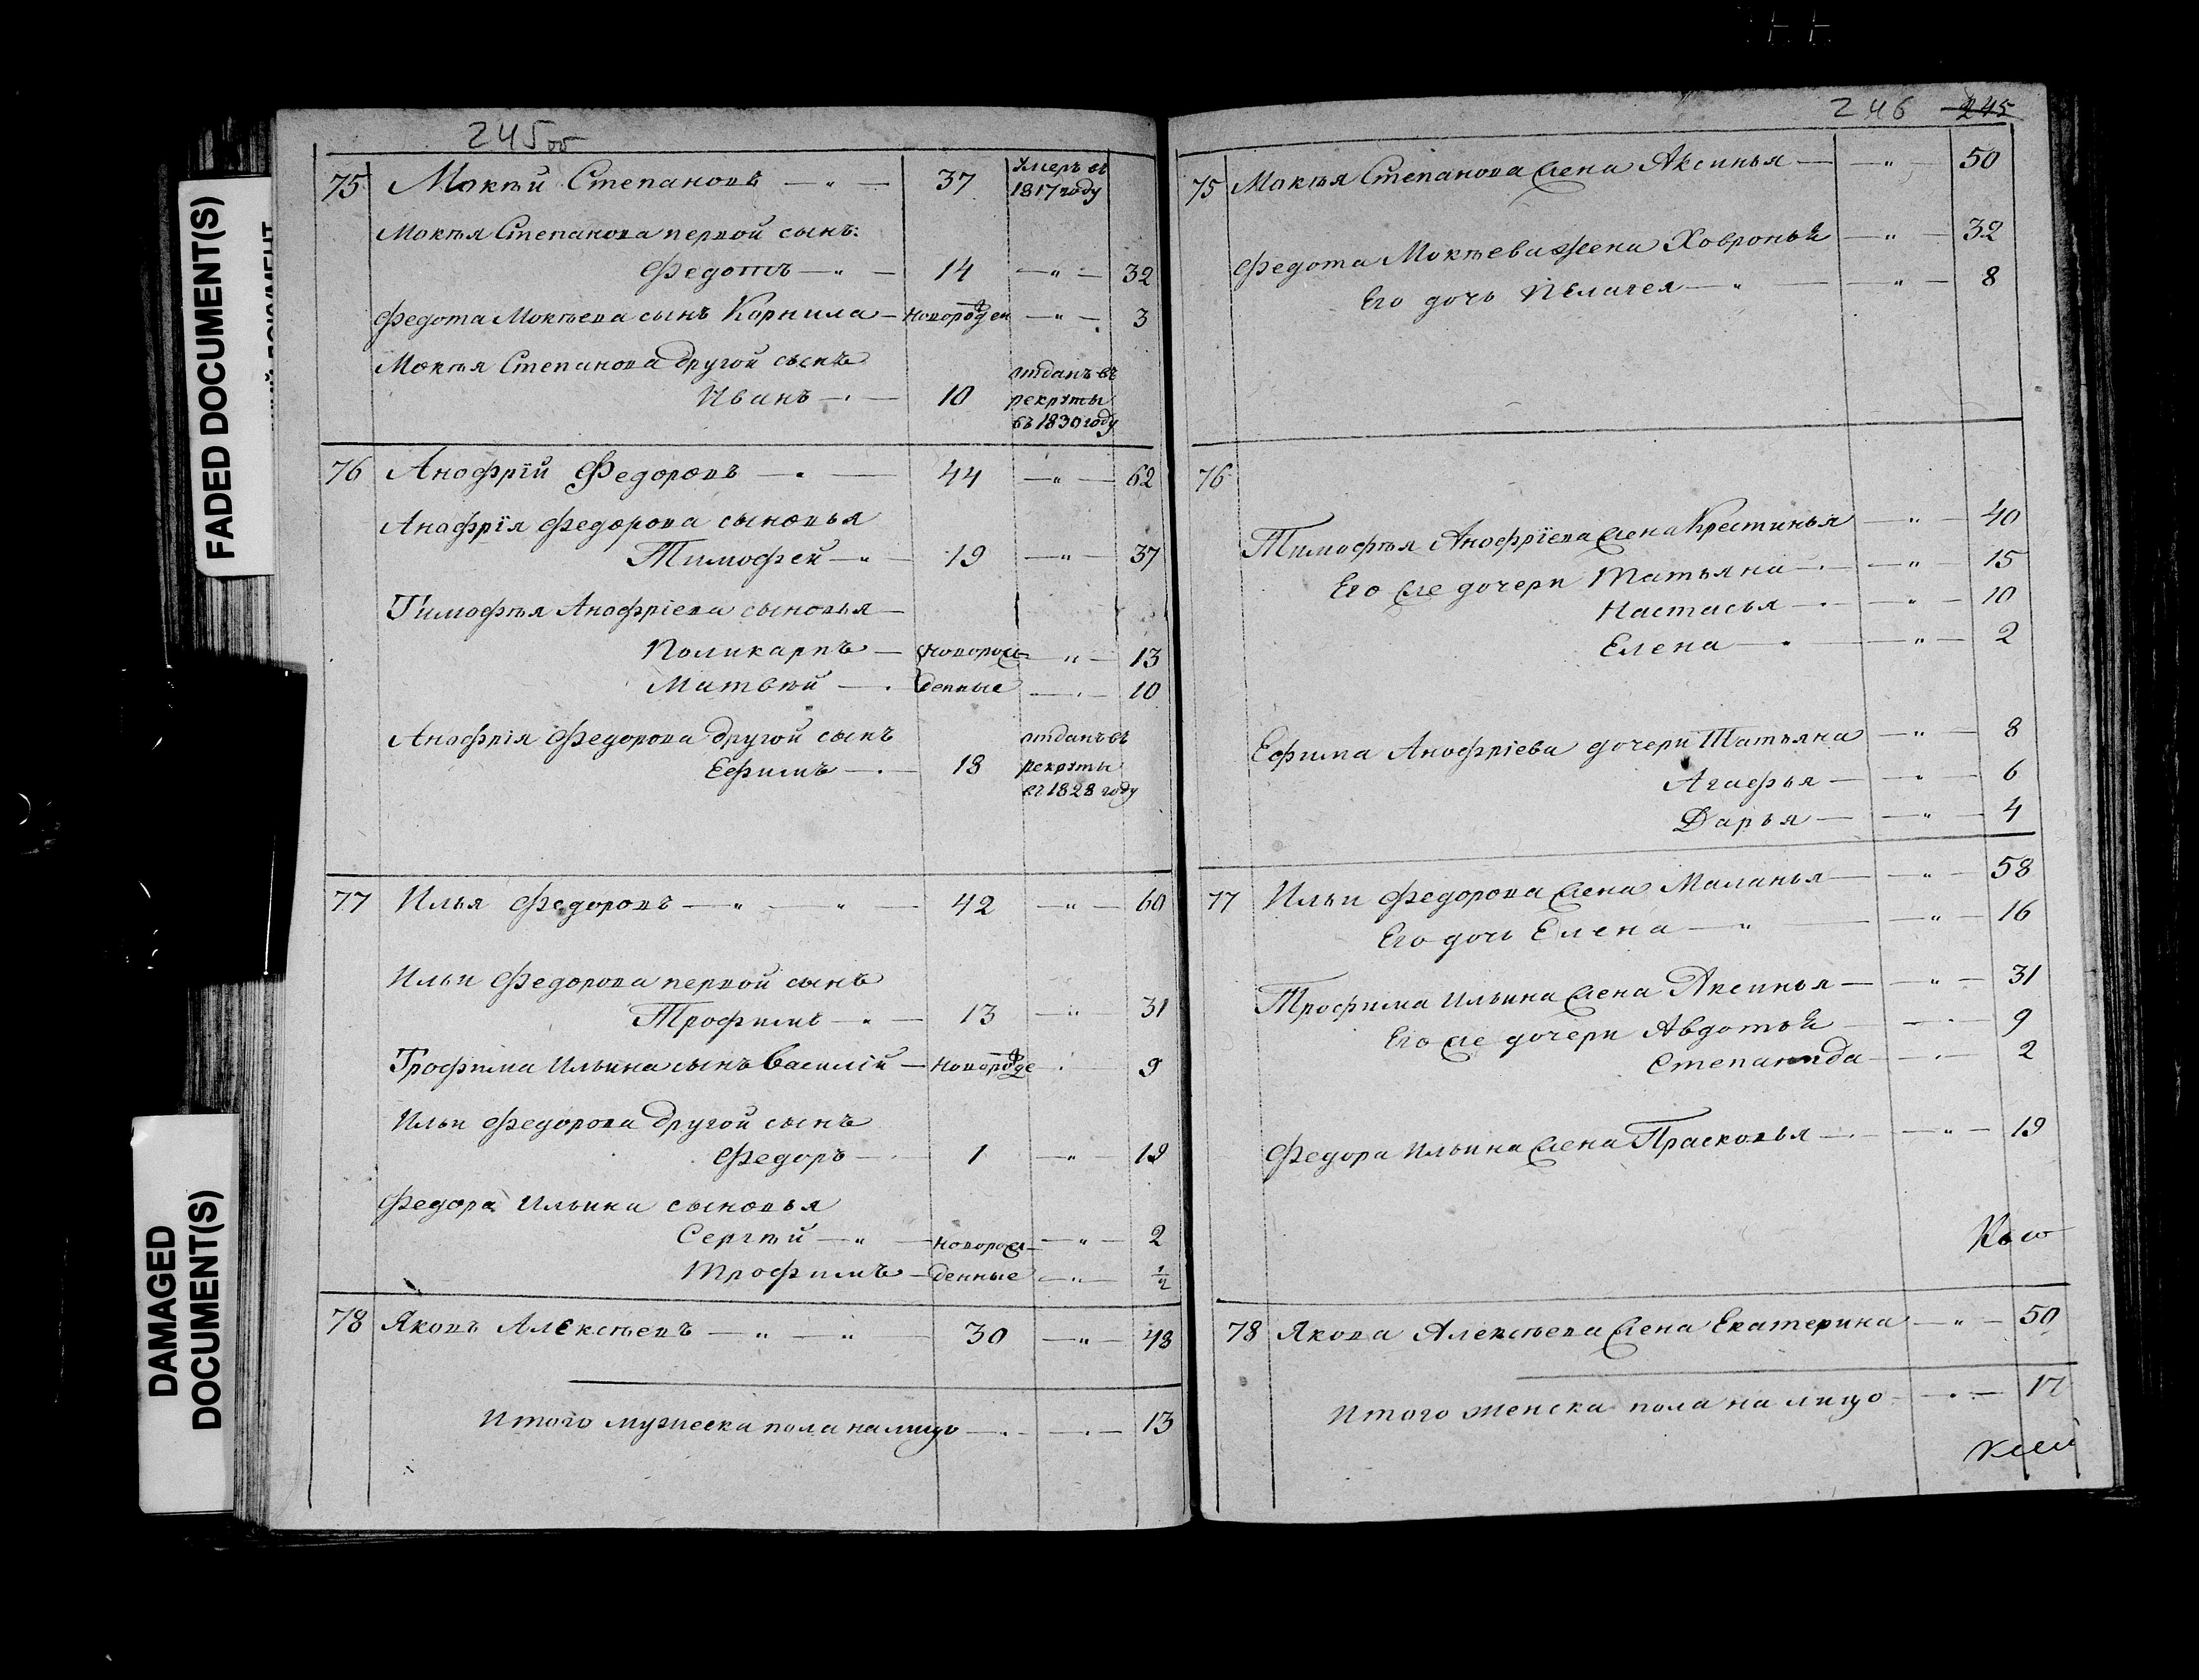 FADED DOCUMENT(S)
DAMAGED
DOCUMENT(S)
245об
75 Мокѣй Степановъ — " — 37 Умеръ въ
1817 году
Мокѣя Степанова первой сынъ:
Федотъ — " — 14 — " — 32
Федота Мокѣева сынъ Корнила — новорожден — " — 3
Мокѣя Степанова другой сынъ
Иванъ — 10 отданъ въ
рекруты
въ 1830 году
76 Анофрїй Федоровъ — 44 — " — 62
Анофрїя Федорова сыновья
Тимофей — " — 19 — " — 37
Тимофѣя Анофрїева сыновья —
Поликарпъ — новорож- — " — 13
Матвѣй — денные — 10
Анофрія Федорова другой сынъ
Ефимъ — 18 отданъ въ
рекруты
въ 1828 году
77 Илья Федоровъ — " — " — 42 — " — 60
Ильи Федорова первой сынъ
Трофимъ — " — 13 — " 31
Трофима Ильина сынъ Василій — новорожде 9
Ильи Федорова другой сынъ
Федоръ — 1 — " — 19
Федора Ильина сыновья
Сергѣй — " — новорож- — " — 2
Трофимъ — денные — " — 1/2
78 Яковъ Алексѣевъ — " — " 30 — " — 48
Итого мужеска пола налицо — 13
246 245
75 Мокѣя Степанова жена Аксинья — — " — 50
Федота Мокѣева жена Ховронья — " — 32
Его дочь Пелагея — " — — " — 8
76
Тимофѣя Анофрїева жена Крестинья — " — 40
Его же дочери Татьяна — — " — 15
Настасья — — " — 10
Елена — — " — 2
Ефима Анофріева дочери Татьяна — " — 8
Агафья — — " — 6
Дарья — — " — 4
77 Ильи Федорова жена Маланья — — " — 58
Его дочь Елена — " — — " — 16
Трофима Ильина жена Аксинья — — " — 31
Его же дочери Авдотья — — 9
Степанида — — 2
Федора Ильина жена Прасковья — — " — 19
78 Якова Алексѣева жена Екатерина — " — 50
Итого женска пола на лицо — 17